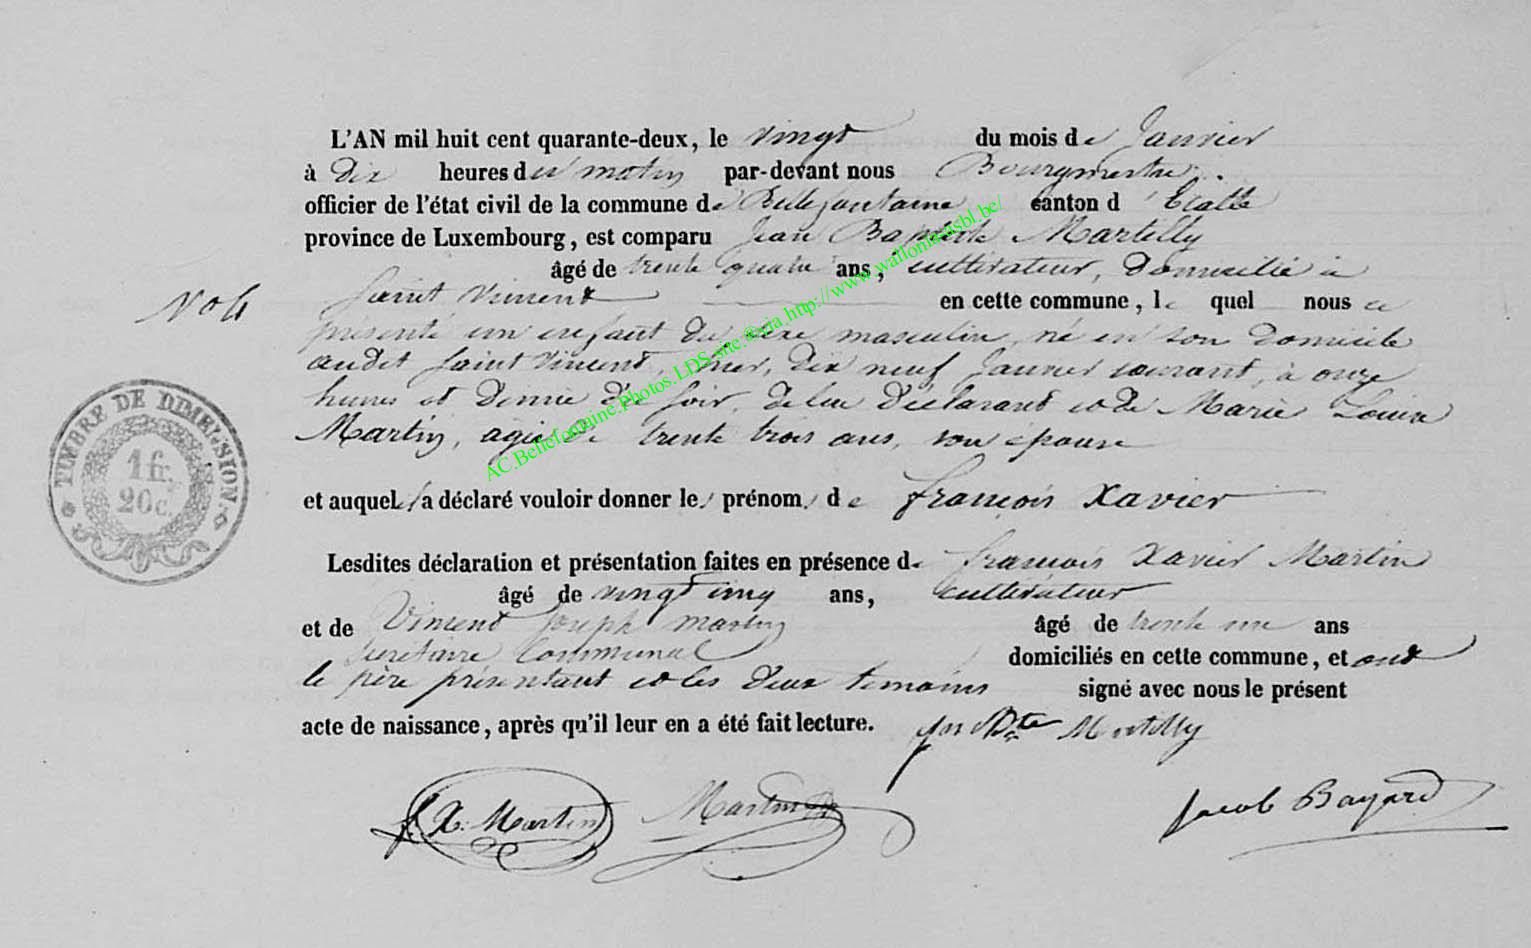 L'AN mil huit cent quarante-deux, le vingt du mois de Janvier
à dix heures du matin par-devant nous Bourgmestre
officier de l'état civil de la commune de Bellefontaine canton d'Etalle
province de Luxembourg, est comparu Jean Baptiste Martilly
âgé de trente quatre ans, cultivateur, domicilié à
Saint Vincent en cette commune, lequel nous a
N° 4
présenté un enfant du sexe masculin, né en son domicile
audit Saint Vincent, hier, dix neuf Janvier courant, à onze
heures et demie du soir, de lui déclarant et de Marie Louise
Martin, agée de trente trois ans, son épouse
et auquel il a déclaré vouloir donner les prénoms de François Xavier
Lesdites déclaration et présentation faites en présence de François Xavier Martin
âgé de vingt cinq ans, cultivateur
et de Vincent Joseph Martin âgé de trente un ans
secrétaire communal domiciliés en cette commune, et ont
le père présentant et les deux temoins signé avec nous le présent
acte de naissance, après qu'il leur en a été fait lecture. Jn Bte Martilly
f X. Martin Martin Jacob Bayard
TIMBRE DE DIMENSION.
1 fr,
20 c.
AC.Bellefontaine.Photos.LDS.site.©via.http://www.wallonia-asbl.be/